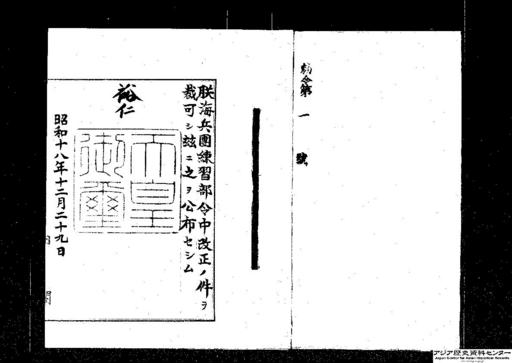 勅令第一號
朕海兵團練習部令中改正ノ件ヲ
裁可シ玆ニ之ヲ公布セシム
裕仁
天皇御璽
昭和十八年十二月二十九日
アジア歴史資料センター
Japan Center for Asian Historical Records